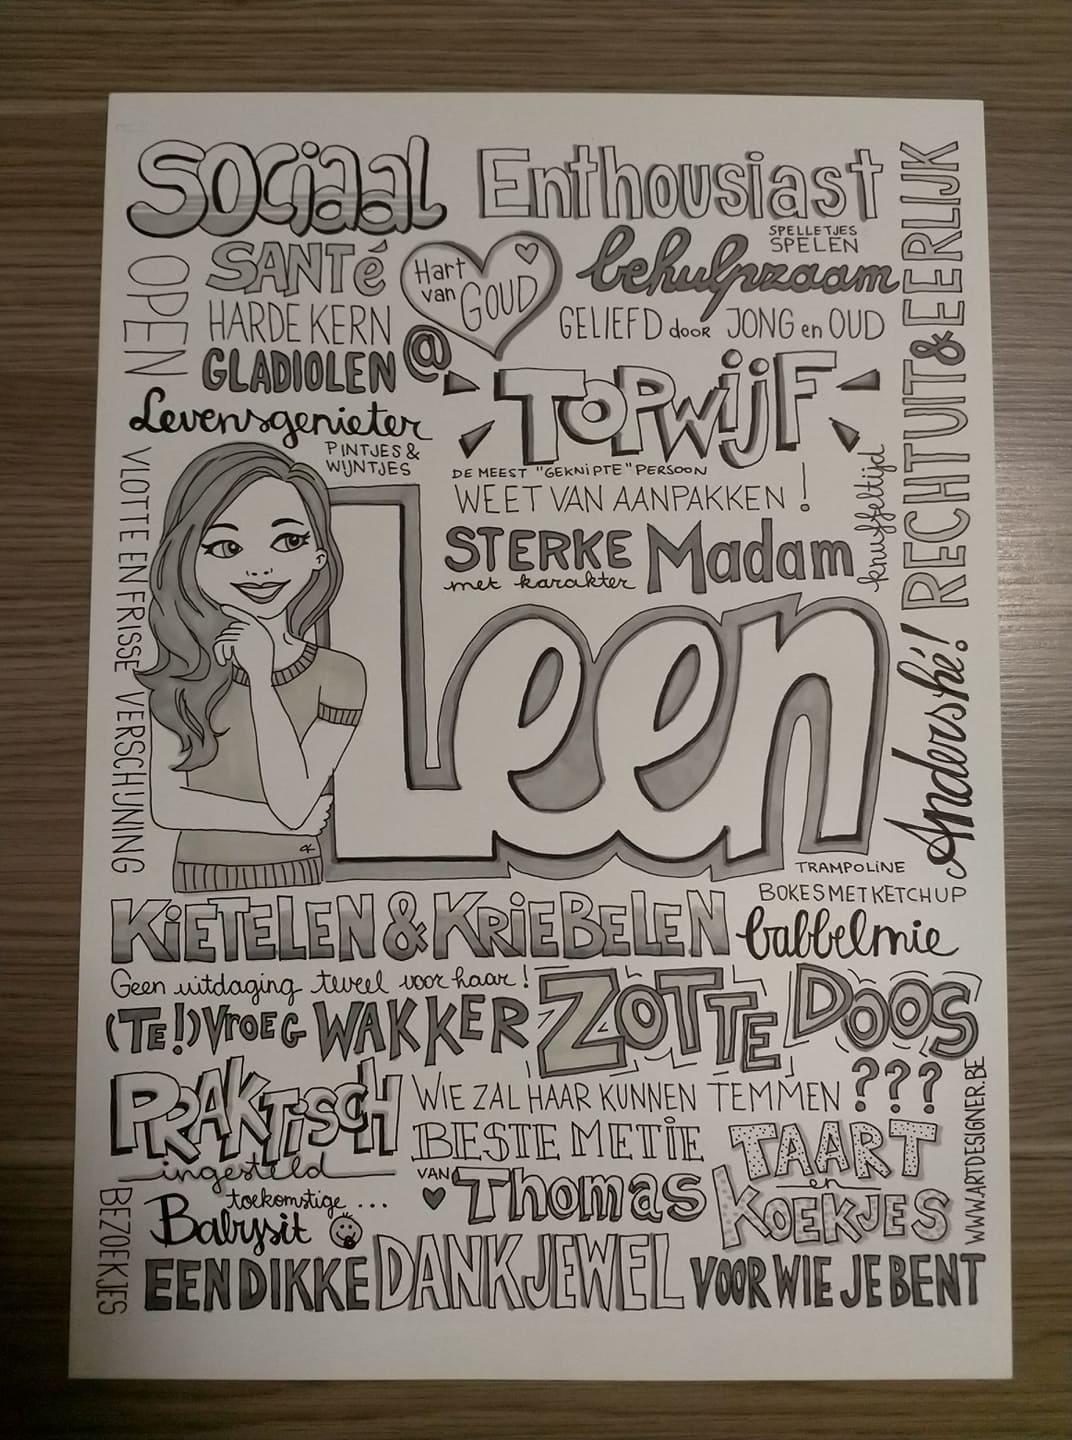 SOCiaal
Enthousiast
SPELLETJES
SPELEN
OPEN
SANTé
Hart
van
GOUD
behulpzaam
HARDE KERN
GELIEFD door JONG en OUD
GLADIOLEN @
RECHTUIT & EERLIJK
Levensgenieter
TOPWijF
PINTJES &
WIJNTJES
DE MEEST "GEKNIPTE" PERSOON
WEET VAN AANPAKKEN !
VLOTTE EN FRISSE VERSCHIJNING
STERKE
met karakter
Madam
knuffeltijd
Leen
Andershé!
TRAMPOLINE
BOKES MET KETCHUP
KiETELEN & KRiEBELEN
babbelmie
Geen uitdaging teveel voor haar!
(TE!) VROEG WAKKER
ZOTTE DOOS
PRAKTiSCH
ingesteld
WIE ZAL HAAR KUNNEN TEMMEN ???
BESTE METiE
VAN
Thomas
TAART
en
KOEKJES
WWW.ARTDESIGNER.BE
BEZOEKJES
toekomstige ...
Babysit
EEN DIKKE DANKJEWEL VOOR WIE JE BENT